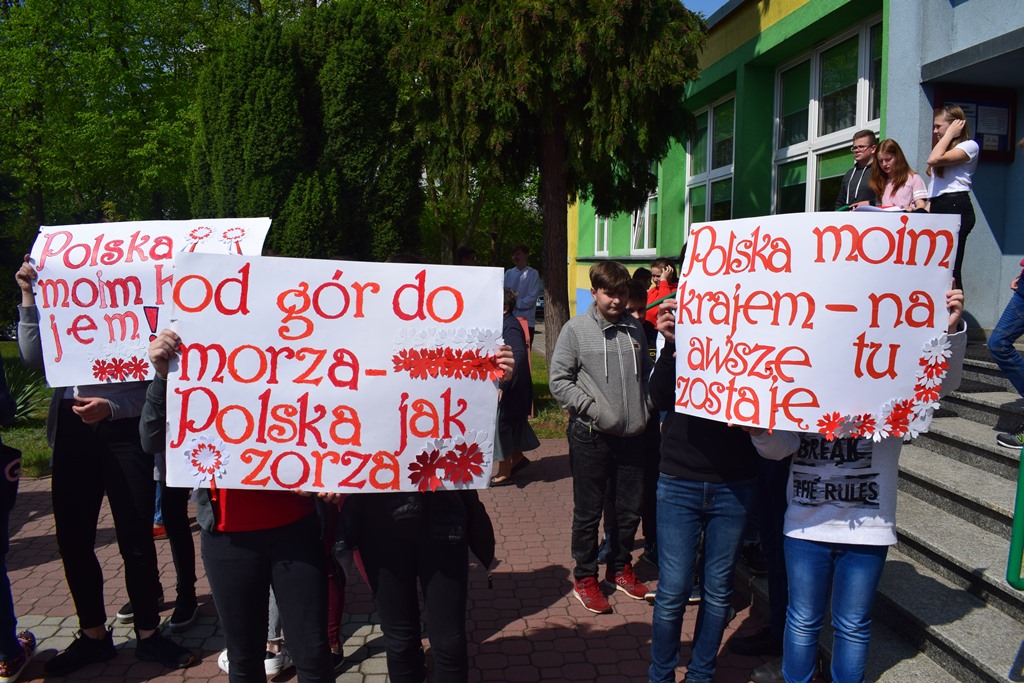 Polska
moim k
jem!
od gór do
morza-
Polska jak
zorza
Polska moim
krajem-na
awsze tu
zostaję
BREAK
THE RULES